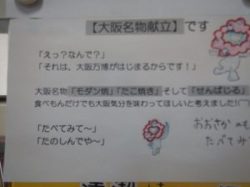 【大阪名物献立】です
「えっ？なんで？」
「それは、大阪万博がはじまるからです！」
大阪名物「モダン焼」「たこ焼き」そして「せんばじる」
食べもんだけでも大阪気分を味わってほしいと考えました!!
「たべてみて〜」
「たのしんでや〜」
おおさか
たべてみ